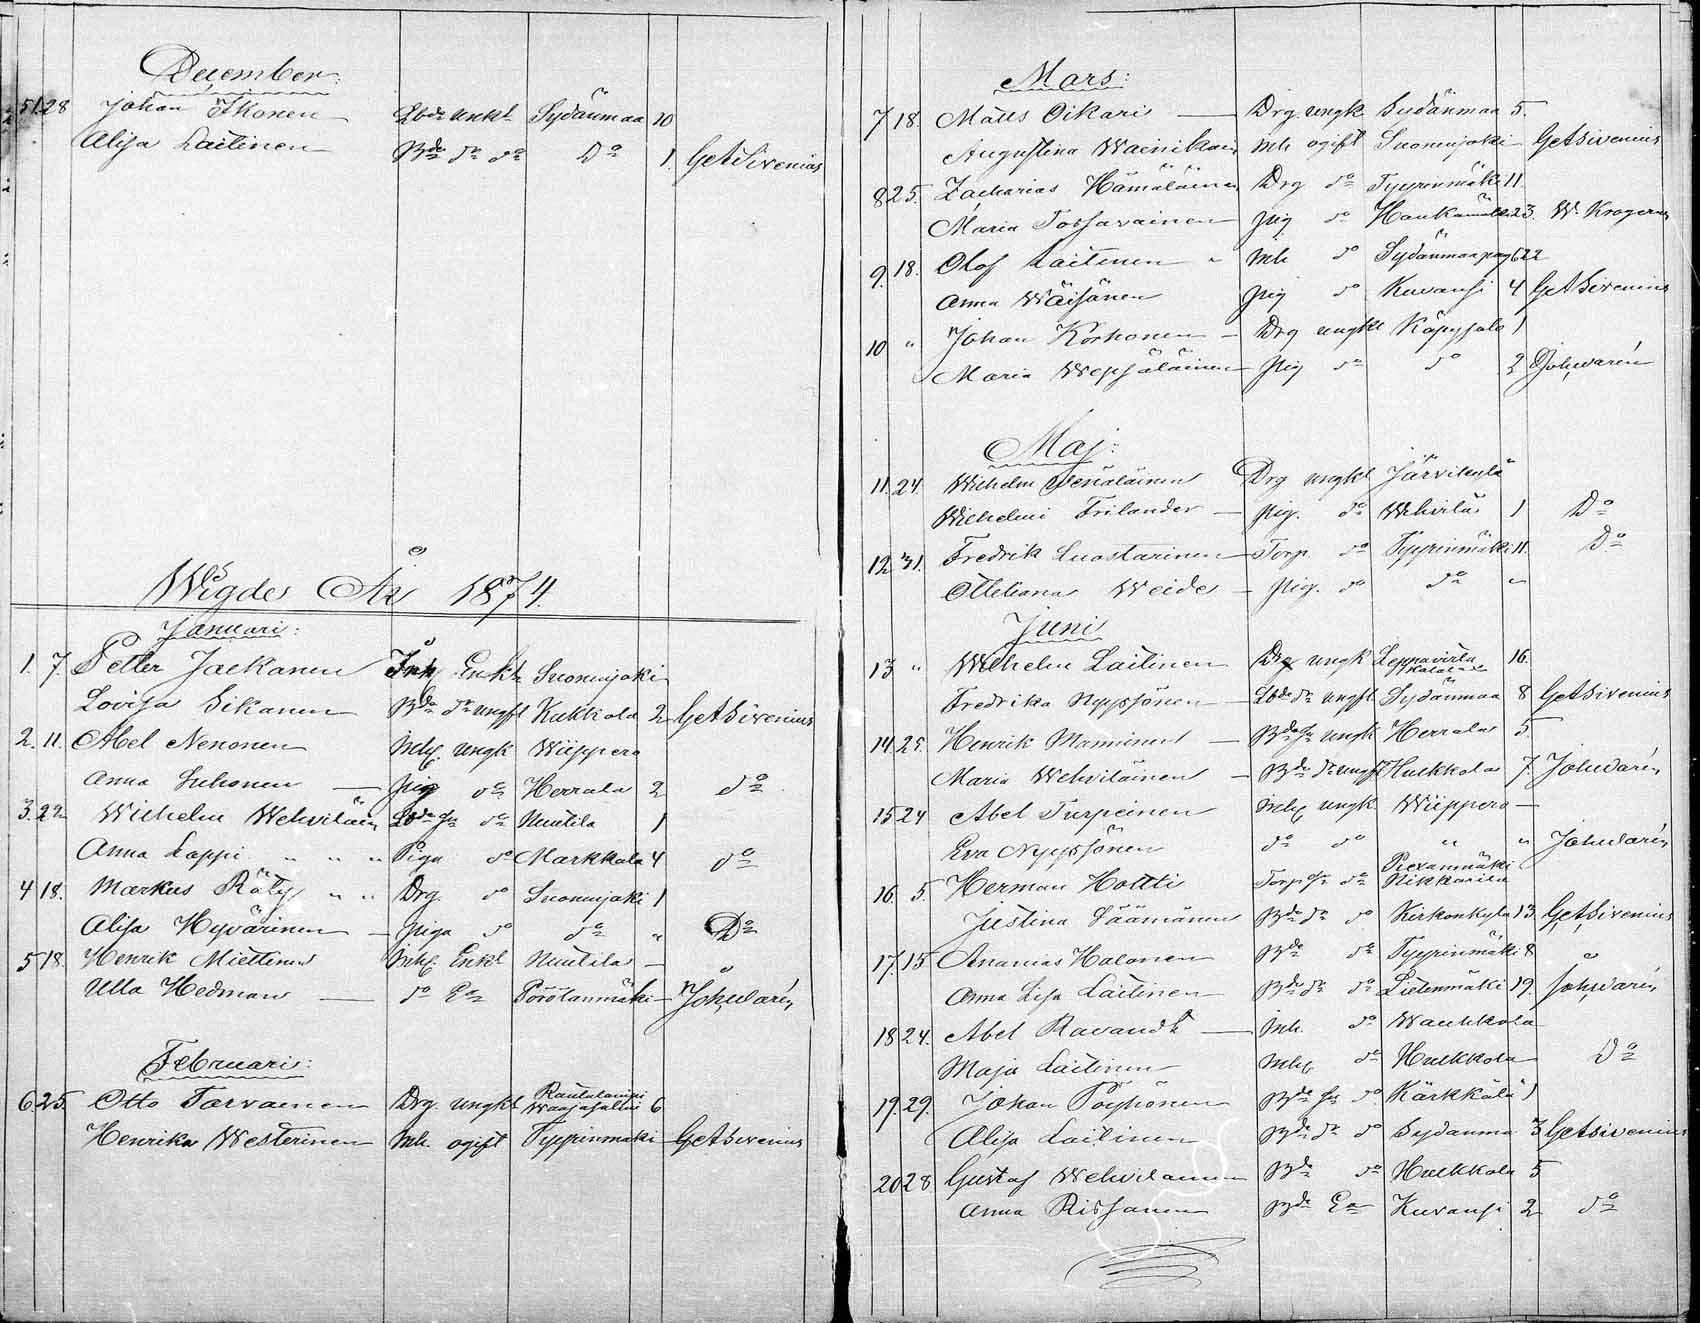 December:
51 28 Johan Ikonen Lbde Enkl Sydänmaa 10
Alisa Laitinen Bde do do Do 1. G A Sirenius
Wigde År 1874.
Januari:
1. 7. Petter Jackanen Inh Enkl Suonenjoki
Lovisa Sikanen Bde do ungft Kukkola 2 G A Sirenius
2. 11. Abel Nenonen Inh. ungk Wiippero
Anna Suhonen — pig do Herrala 2 do
3. 22 Wilhelm Wehviläin Lbde sn do Nuutila 1
Anna Lappi " " " Piga do Markkala 4 do
4 18. Markus Räty " " Drg. do Suonenjoki 1
Alisa Hyvärinen — piga do do " Do
5 18. Henrik Miettinen Inh. Enkl Nuutila —
Ulla Hedman — do Ea Pörölänmäki — Joh, warén
Februari:
6 25. Otto Tarvainen Drg. ungkl Rautalampi 6
Henrika Westerinen Inh. ogift Tyyrinmäki — G A Sirenius
Mars:
7 18. Matts Oikari — Drg ungk Sydänmaa 5.
Augustina Wainikain Inh ogift Suonenjoki G A Sirenius
8 25. Zacharias Hämäläinen Drg do Tyyrinmäki 11.
Maria Tossavainen pig do 23. W. Krogerus
9. 18. Olof Laitinen " Inh do Sydänmaa pag 622
Anna Wäisänen pig do Kuvansi 4 G A Sirenius
10 " Johan Korhonen — Drg ungkl Käpysalo 1
Maria Wepsäläinen — pig do do 2 Joh, warén
Maj:
11. 24. Wilhelm Venäläinen Drg ungkl Järvikylä
Wilhelmi Frilander — pig. do Wehvilä 1 Do
12 31. Fredrik Luostarinen — Torp do Tyyrinmäki 11. Do
Ottiliana Weide — pig. do do "
Juni
13 " Wilhelm Laitinen Drg ungk Leppävirta 16.
Fredrika Nyyssönen — Lbde do ungft Sydänmaa 8 G A Sirenius
14 25. Henrik Manninen — Bde sn ungk Herrala 5.
Maria Wehviläinen — Bde do ungft Hulkkola 7. Joh, warén
15 24 Abel Turpeinen Inh, ungk Wiippero —
Eva Nyyssönen do do " " Joh, warén
Piexänmäki
16. 5. Herman Hottti Torp sn do Nikkarila
Justina Säämänen Bde do do Kirkonkylä 13. G A Sirenius
17 15 Ananias Halonen Bde do Tyyrinmäki 8
Anna Lisa Laitinen Bde do do Lietenmäki 19. Joh, warén
18 24. Abel Ravandi — Inh. do Wauhkola
Maja Laitinen Inh, do Hulkkola Do
19. 29. Johan Pöyhönen Bde sn do Kärkkälä 1
Alisa Laitinen Bde do do Sydänma 3 G A Sirenius
20 28 Gustaf Wehviläinen Bde do Hulkkola 5
Anna Rissanen Bde Ea Kuvansi 2 do